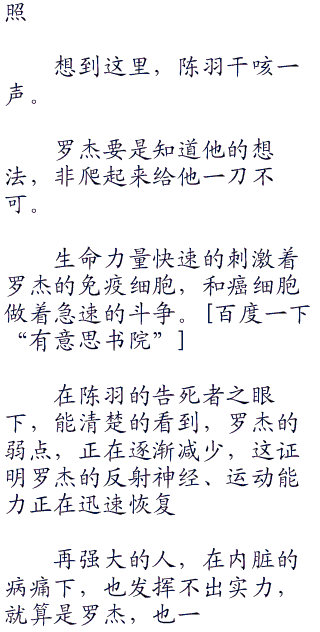 照
想到这里，陈羽干咳一
声。
罗杰要是知道他的想
法，非爬起来给他一刀不
可。
生命力量快速的刺激着
罗杰的免疫细胞，和癌细胞
做着急速的斗争。[百度一下
“有意思书院”]
在陈羽的告死者之眼
下，能清楚的看到，罗杰的
弱点，正在逐渐减少，这证
明罗杰的反射神经、运动能
力正在迅速恢复
再强大的人，在内脏的
病痛下，也发挥不出实力，
就算是罗杰，也一